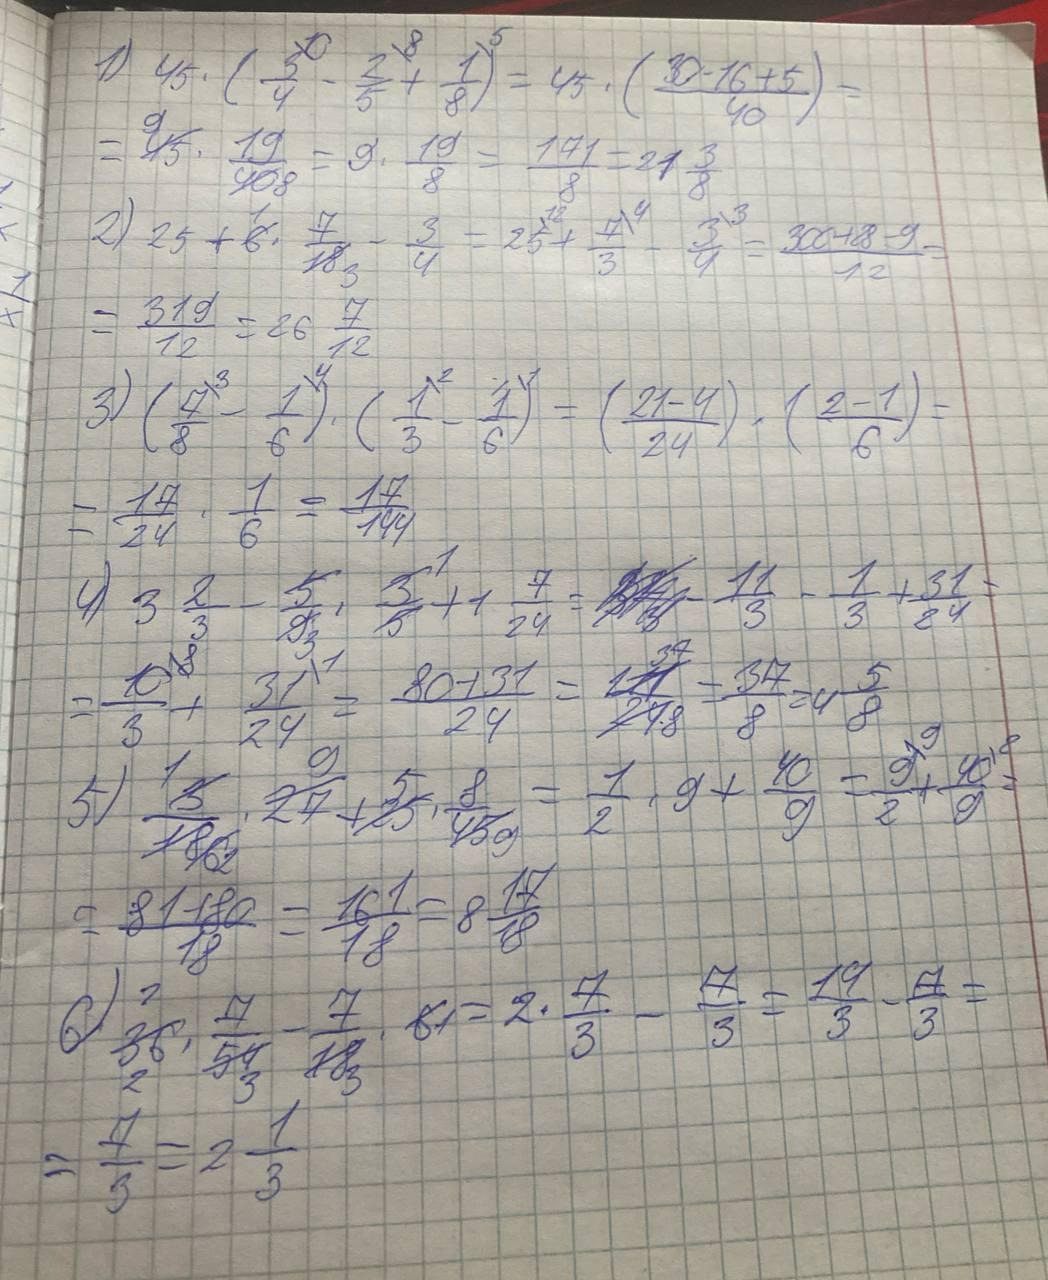 1) 45 · (3/4 \10 - 2/5 \8 + 1/8 \5) = 45 · ((30-16+5)/40) =
= 45 9 · 19/40 8 = 9 · 19/8 = 171/8 = 21 3/8
2) 25 + 6 1 · 7/18 3 - 3/4 = 25 \12 + 7/3 \4 - 3/4 \3 = (300+28-9)/12 =
= 319/12 = 26 7/12
3) (7/8 \3 - 1/6 \4) · (1/3 \2 - 1/6 \1) = ((21-4)/24) · ((2-1)/6) =
= 17/24 · 1/6 = 17/144
4) 3 2/3 - 5/9 3 · 3/5 1 + 1 7/24 = 11/3 - 1/3 + 31/24 =
= 10/3 \8 + 31/24 \1 = (80+31)/24 = 111 37/24 8 = 37/8 = 4 5/8
5) 1 · 27 9 + 25 5 · 8/45 9 = 1/2 · 9 + 40/9 = 9/2 \9 + 40/9 \8 =
= (81+80)/18 = 161/18 = 8 17/18
6) 36 2 · 7/54 3 - 7/18 3 · 6 1 = 2 · 7/3 - 7/3 = 14/3 - 7/3 =
= 7/3 = 2 1/3